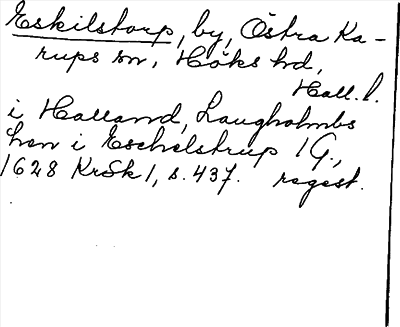 Eskilstorp, by, Östra Ka-
rups sn, Höks hd,
Hall. l.
i Halland, Laugholmbs
hen i Eschelstrup 1 G.,
1628 KrSk 1, s. 437. regest.